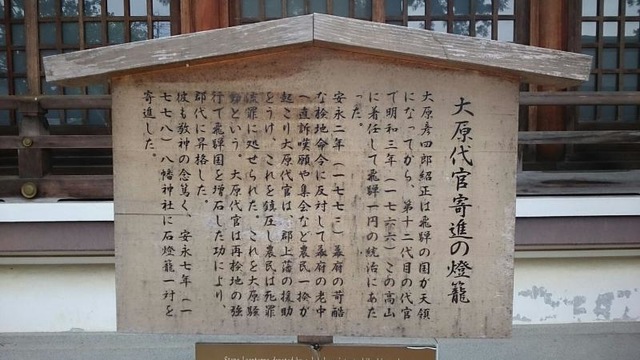 大原代官寄進の燈籠
大原彦四郎紹正は飛騨の国が天領
になってから、第十二代目の代官
で明和三年(一七六六)この高山
に着任して飛騨一円の統治にあた
った。
安永二年(一七七三)幕府の苛酷
な検地命令に反対して幕府の老中
へ直訴嘆願や集会など農民一揆が
起こり大原代官は、郡上藩の援助
をうけ、これを鎮圧し農民は死罪
流罪に処せられた。これを大原騒
動という。大原代官は再検地の強
行で飛騨国を増石した功により、
郡代に昇格した。
彼も敬神の念篤く、安永七年(一
七七八)八幡神社に石燈籠一対を
寄進した。
Stone lanterns donated by